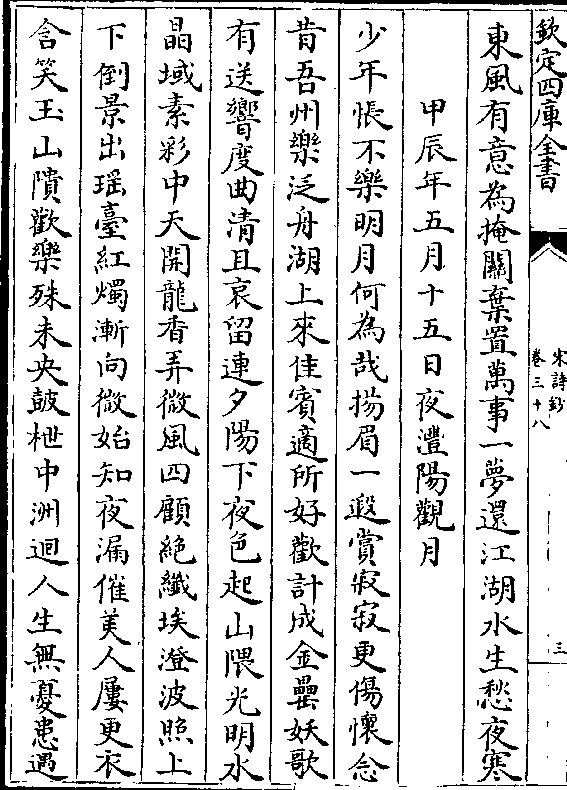 欽定四庫全書
宋詩鈔
卷三十八
三
東風有意為掩關棄置萬事一夢還江湖水生愁夜寒
甲辰年五月十五日夜灃陽觀月
少年悵不樂明月何為哉揚眉一遐賞寂寂更傷懷念
昔吾州樂泛舟湖上來佳賓適所好歡計成金罍妖歌
有送響度曲清且哀留連夕陽下夜色起山隈光明水
晶域素彩中天開龍香弄微風四顧絶纖埃澄波照上
下倒景出瑶臺紅燭漸向微始知夜漏催美人屢更衣
含笑玉山隤歡樂殊未央鼓枻中洲迴人生無憂患遇